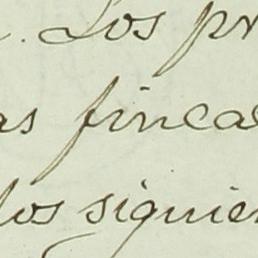 . Los pr
as finca
los siguien